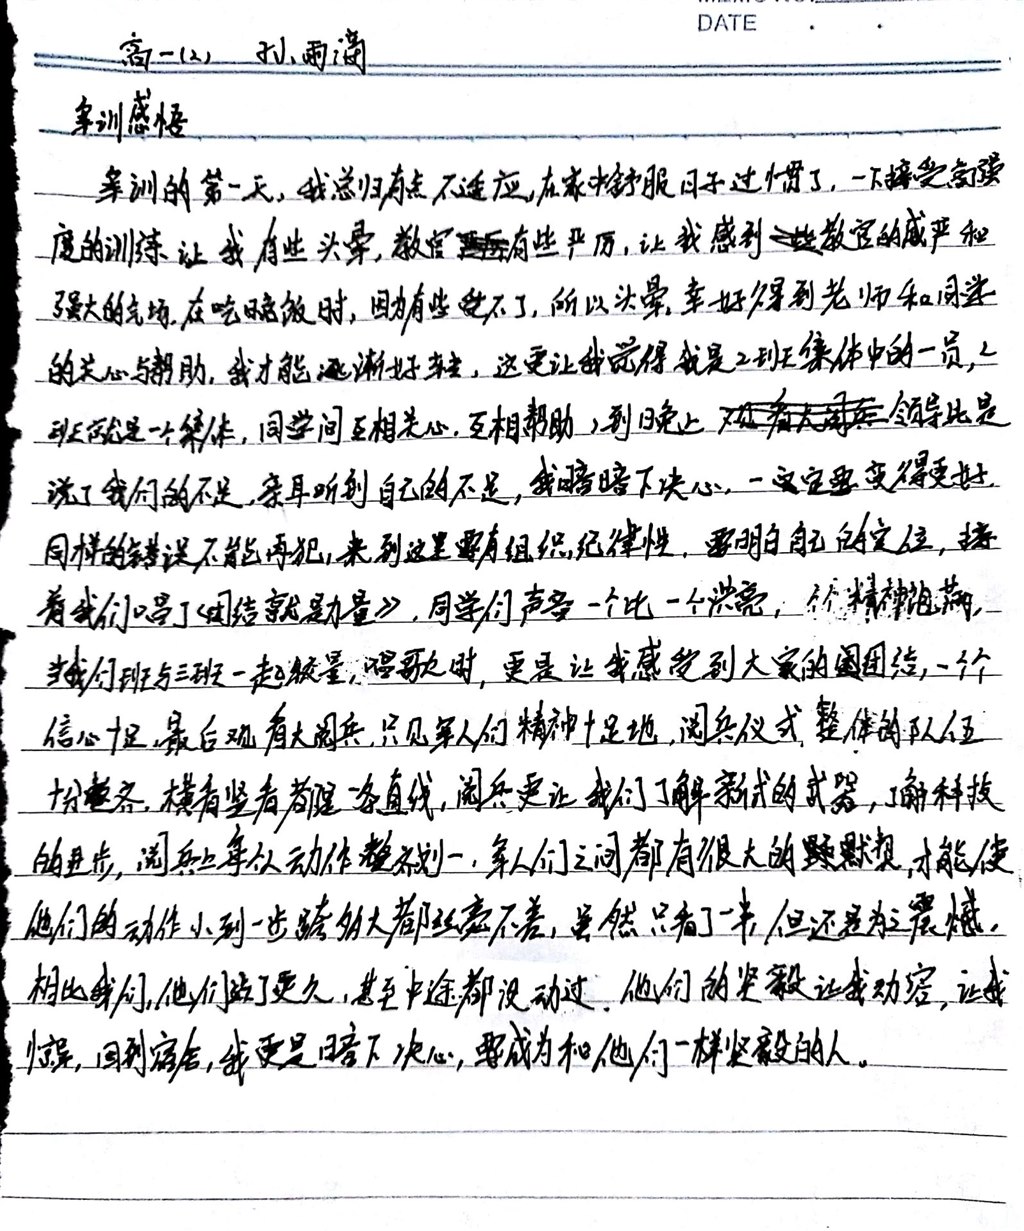 DATE . .
高一(2) 孙雨滴
军训感悟
军训的第一天,我总归有点不适应,在家中舒服日子过惯了,一下接受高强
度的训练让我有些头晕,教官有些严厉,让我感到教官的威严和
强大的气场。在吃晚饭时,因为有些受不了,所以头晕,幸好得到老师和同学
的关心与帮助,我才能逐渐好转,这更让我觉得我是2班集体中的一员,2
班就是一个集体,同学间互相关心,互相帮助,到晚上领导比是
说了我们的不足,亲耳听到自己的不足,我暗暗下决心,一定要变得更好,
同样的错误不能再犯,来到这里要有组织纪律性,要明白自己的定位,接
着我们唱了《团结就是力量》,同学们声音一个比一个洪亮,个个精神饱满,
当我们班与三班一起较量,唱歌时,更是让我感受到大家的团结,一个个
信心十足,最后观看大阅兵,只见军人们精神十足地,阅兵仪式整体的队伍
十分整齐,横看竖看都是一条直线,阅兵更让我们了解新式的武器,了解科技
的进步,阅兵上每个人动作整齐划一,军人们之间都有很大的默契,才能使
他们的动作小到一步跨多大都丝毫不差,虽然只看了一半,但还是为之震撼。
相比我们,他们站了更久,甚至中途都没动过,他们的坚毅让我动容,让我
惊异,回到宿舍,我更是暗下决心,要成为和他们一样坚毅的人。